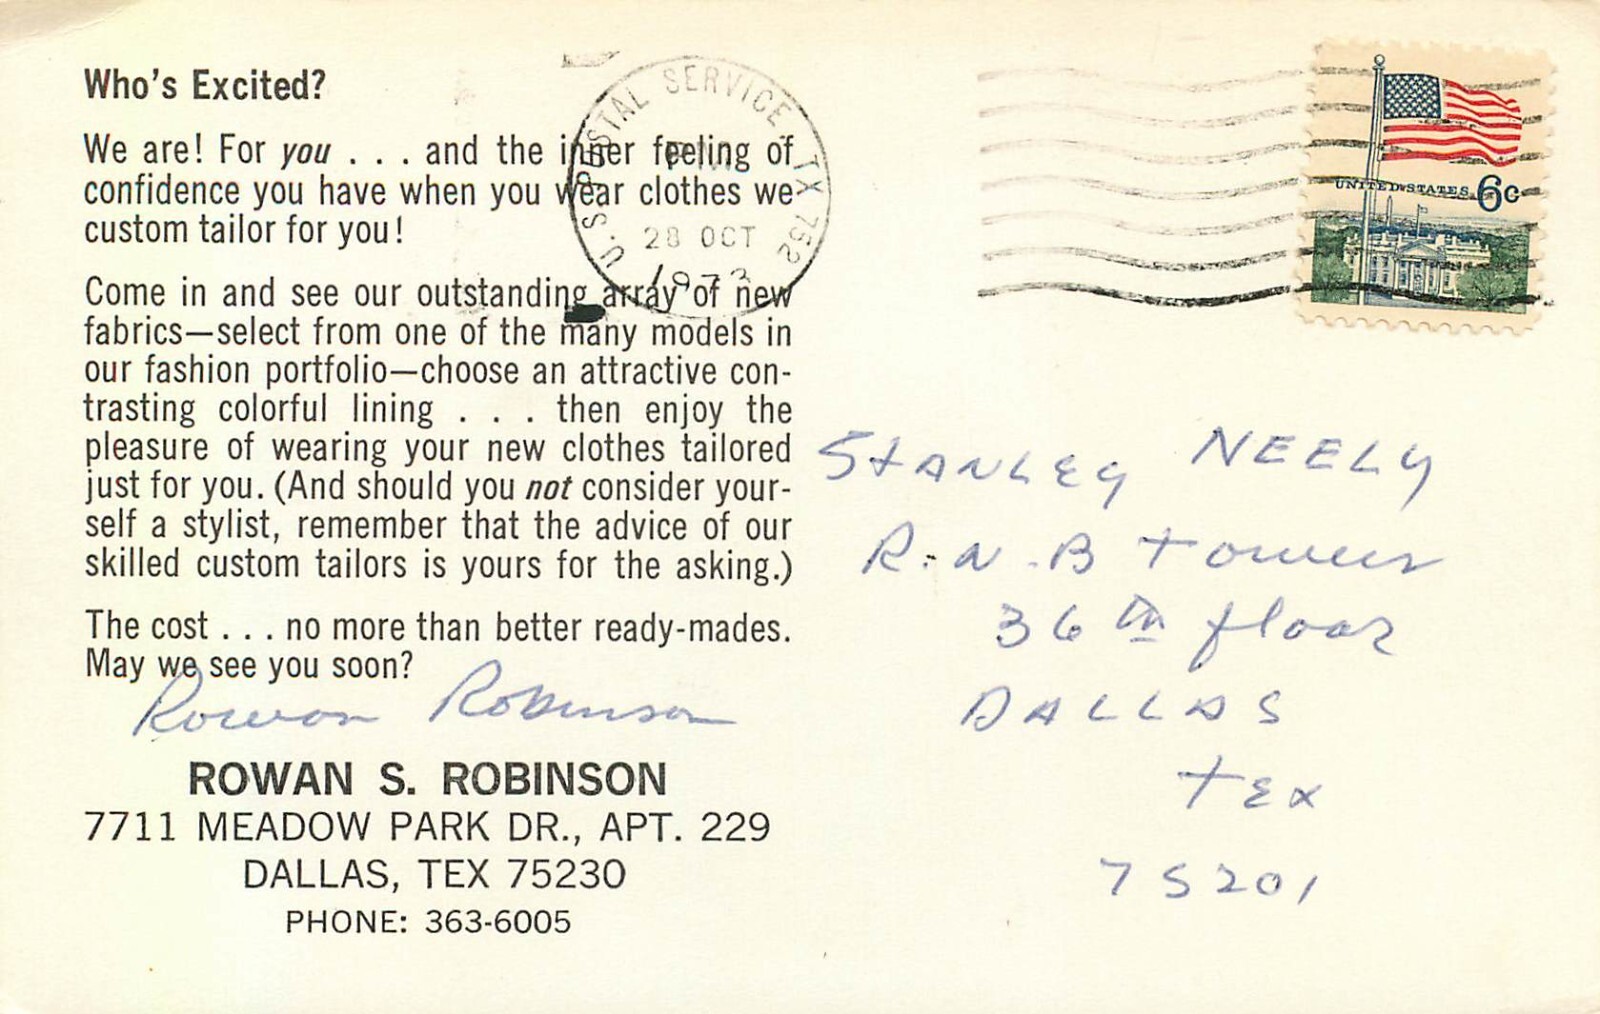 Who's Excited?
We are! For you . . . and the inner feeling of
confidence you have when you wear clothes we
custom tailor for you!
Come in and see our outstanding array of new
fabrics—select from one of the many models in
our fashion portfolio—choose an attractive con-
trasting colorful lining . . . then enjoy the
pleasure of wearing your new clothes tailored
just for you. (And should you not consider your-
self a stylist, remember that the advice of our
skilled custom tailors is yours for the asking.)
The cost . . . no more than better ready-mades.
May we see you soon?
Rowan Robinson
ROWAN S. ROBINSON
7711 MEADOW PARK DR., APT. 229
DALLAS, TEX 75230
PHONE: 363-6005
U.S. POSTAL SERVICE TX 752
PM
28 OCT
1973
UNITED STATES 6c
STANLEY NEELY
R.N.B Towers
36th floor
DALLAS
TEX
75201